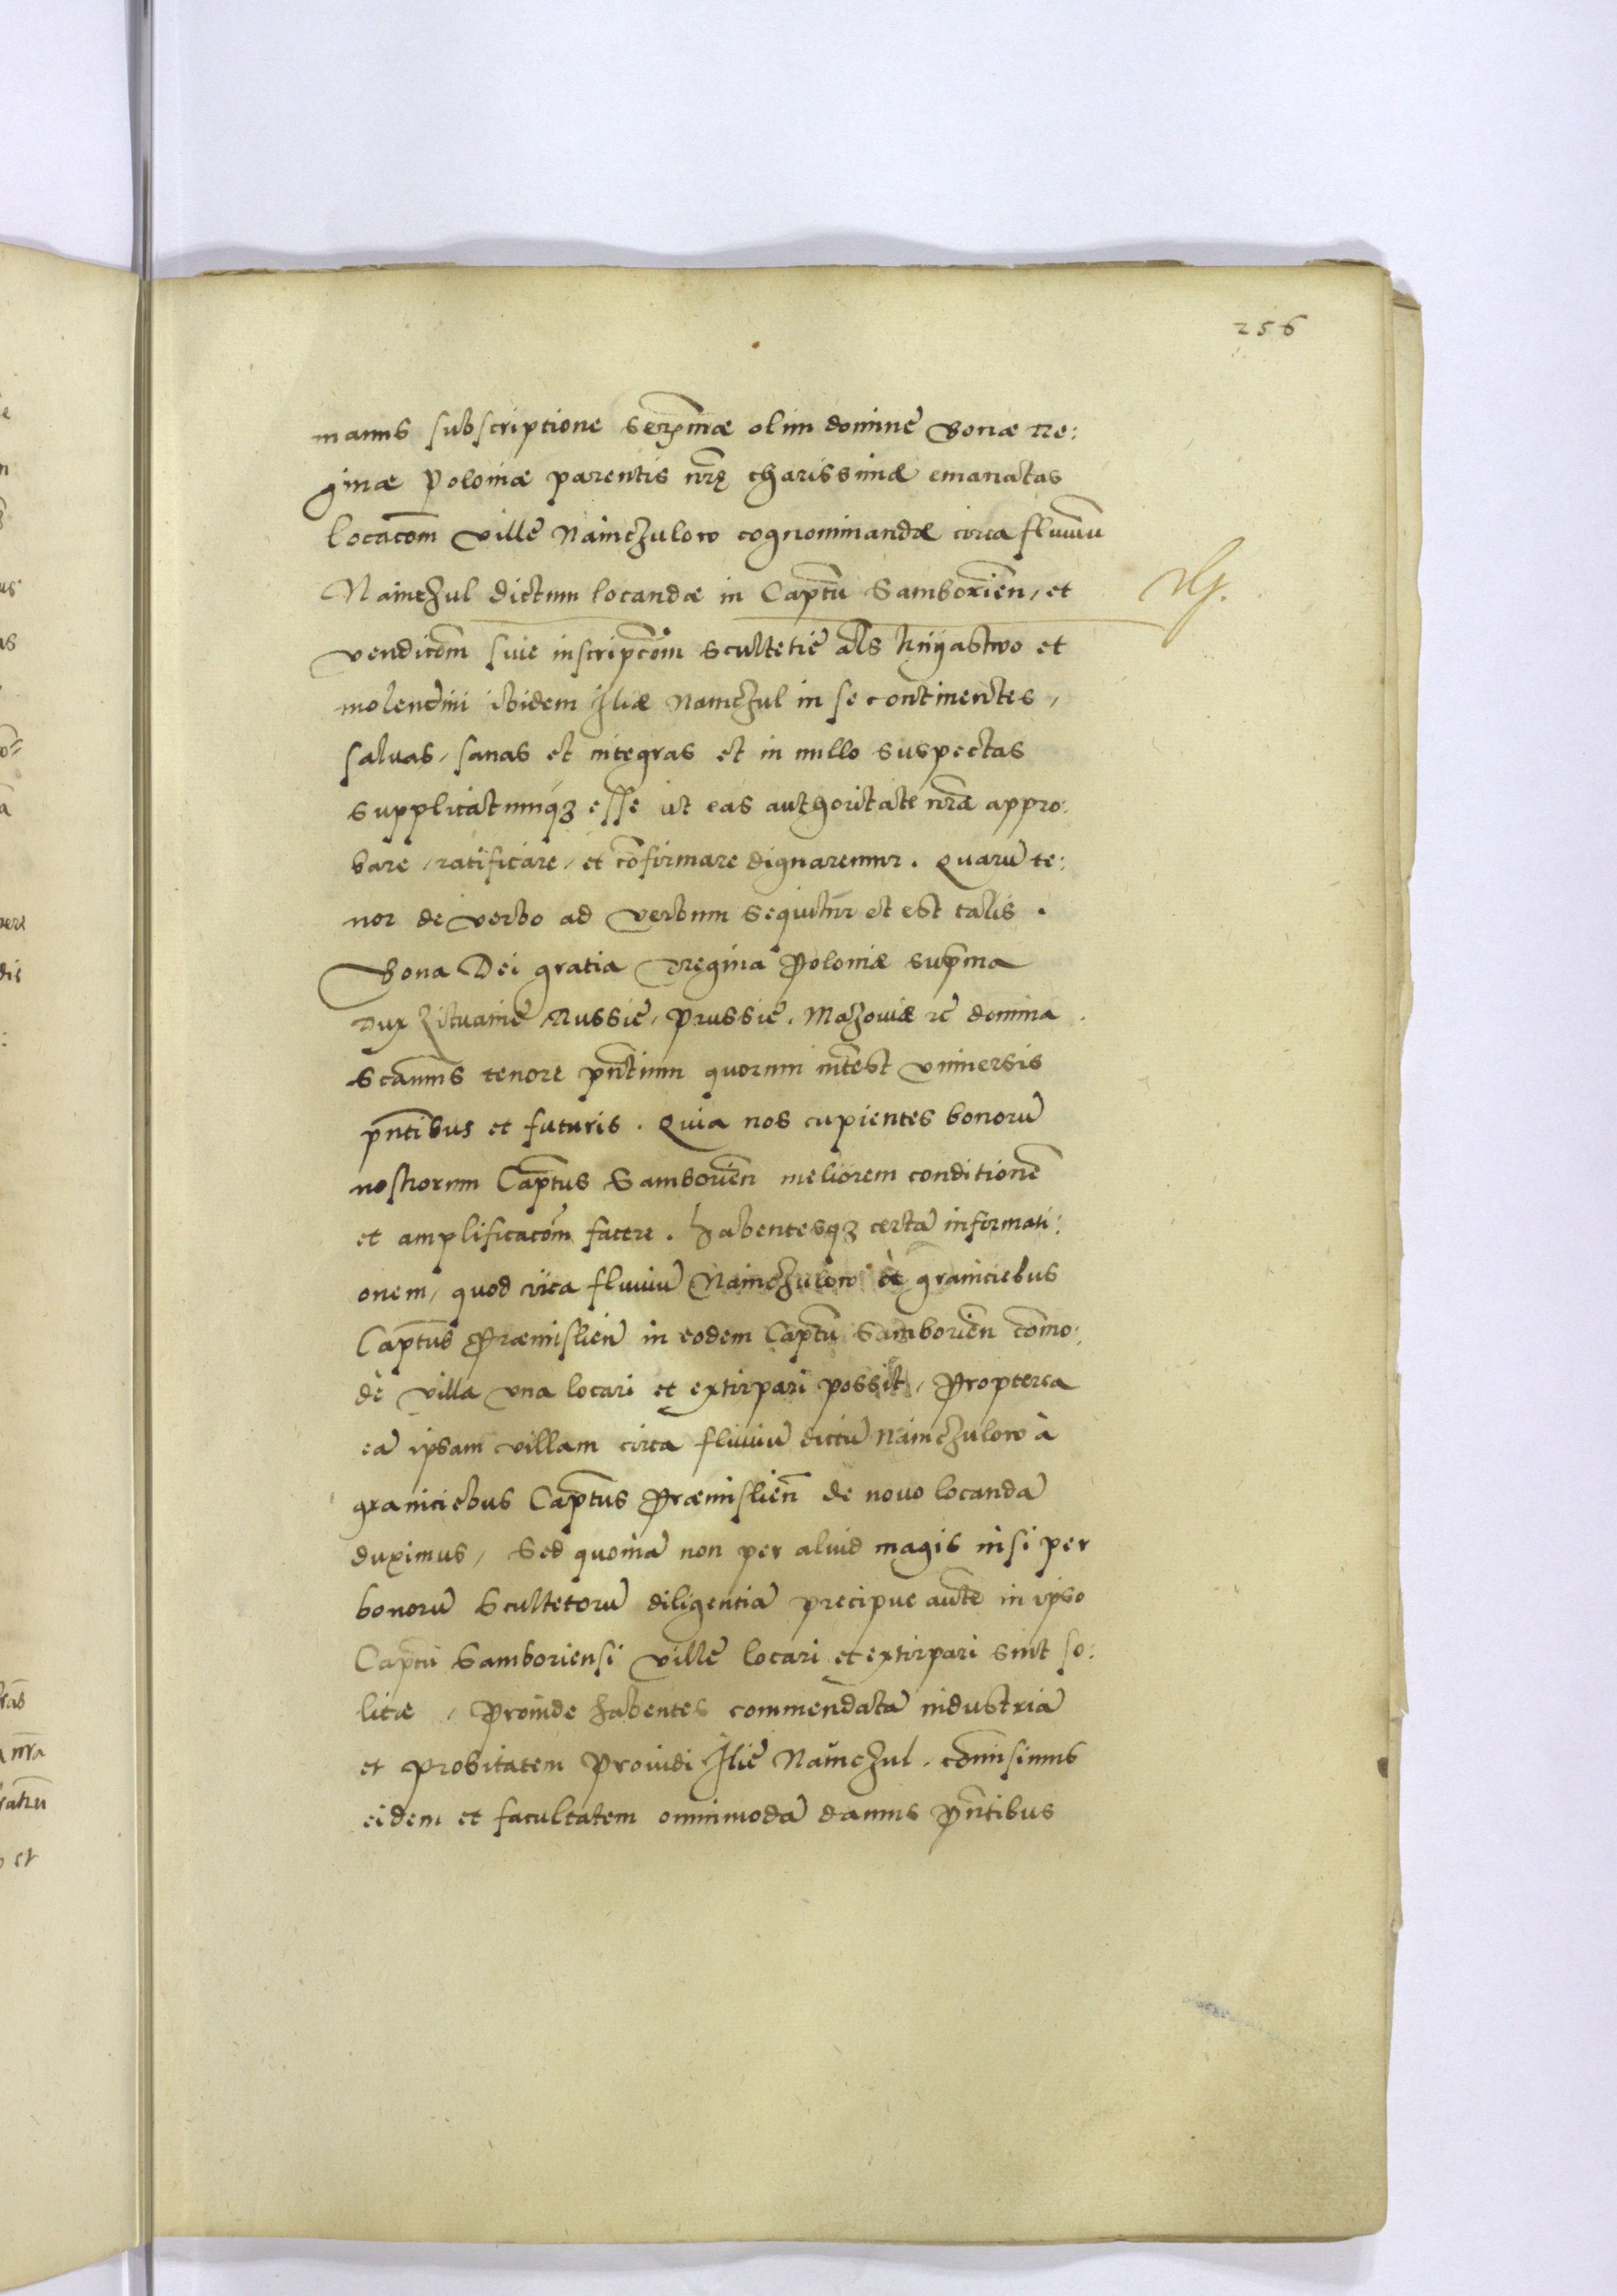 256
manus subscriptione Serenmæ olim dominę Bonæ Re:
ginæ Poloniæ parentis nrę charissimæ emanatas
locacōm villę Nainczulow cognominandæ circa fluuiū
Nainczul dictum locandæ in Captū Samborien, et
vendicōm siue inscripcōm scultetię als knyastwo et
molendini ibidem Iliæ Nainczul in se continentes,
saluas, sanas et integras et in nullo suspectas
supplicatumq3 esse ut eas authoritate nrā appro:
bare, ratificare, et cōfirmare dignaremur. Quarū te:
nor de verbo ad verbum sequitur et est talis.
Bona Dei gratia Regina Poloniæ suprma
Dux Lituanię Russię, Prussię, Mazouiæ rc domina.
Scimus tenore pntium quorum intest vniuersis
pntibus et futuris. Quia nos cupientes bonorū
nostrorum Captus Samborien meliorem conditionē
et amplificacōm facere. habentesq3 certā informati:
onem, quod circa fluuiū Nainczulow à graniciebus
Captus Præmislien in eodem Captū Samborien cōmo:
dè villa vna locari et extirpari possit, Propterea
eā ipsam villam circa fluuiū dictū Nainczulow à
graniciebus Captus Præmislien de nouo locandā
duximus, Sed quoniā non per aliud magis nisi per
bonorū scultetorū diligentiā precipuę autē in ipso
Captu Samboriensi villę locari et extirpari sint so:
litæ, Proinde habentes commendatā industriā
et probitatem prouidi Ilię Nainczul. cōmisimus
eidem et facultatem omnimodā damus pntibus